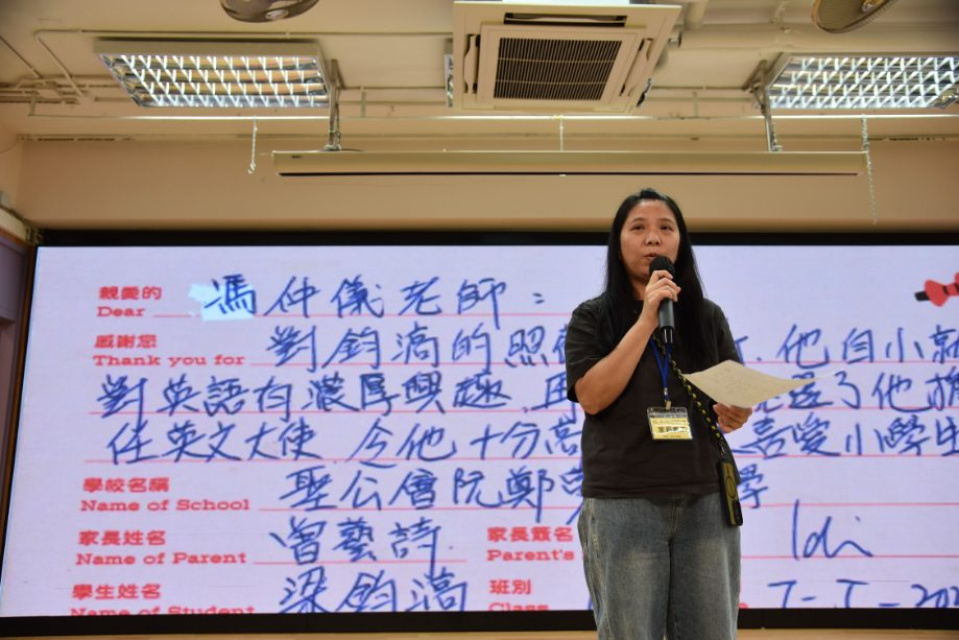 親愛的
Dear 馮仲儀老師：
感謝您
Thank you for 對鈞滈的照 他自小就
對英語有濃厚興趣，再 選了他擔
任英文大使，令他十分高 喜愛小學生
學校名稱
Name of School 聖公會阮鄭 學
家長姓名 家長簽名
Name of Parent 曾藝詩 Parent's
學生姓名 班別
Name of Student 梁鈞滈 Class